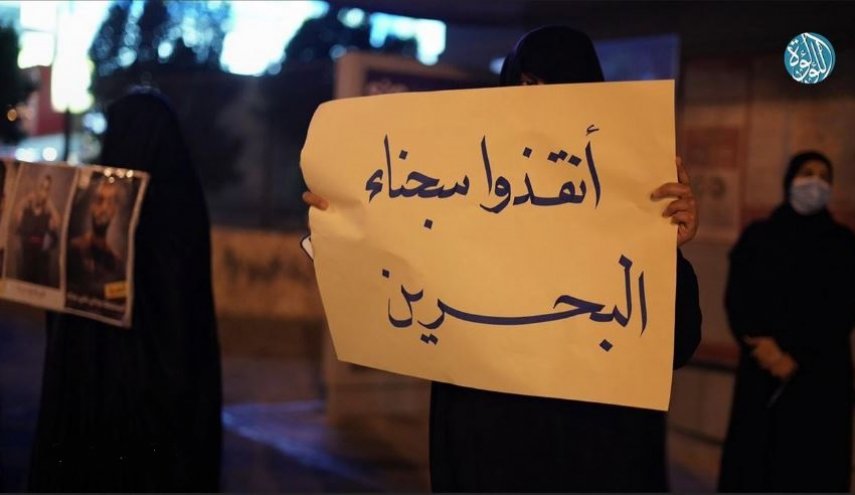 أنقذوا سجناء
البحرين
اللؤلؤة